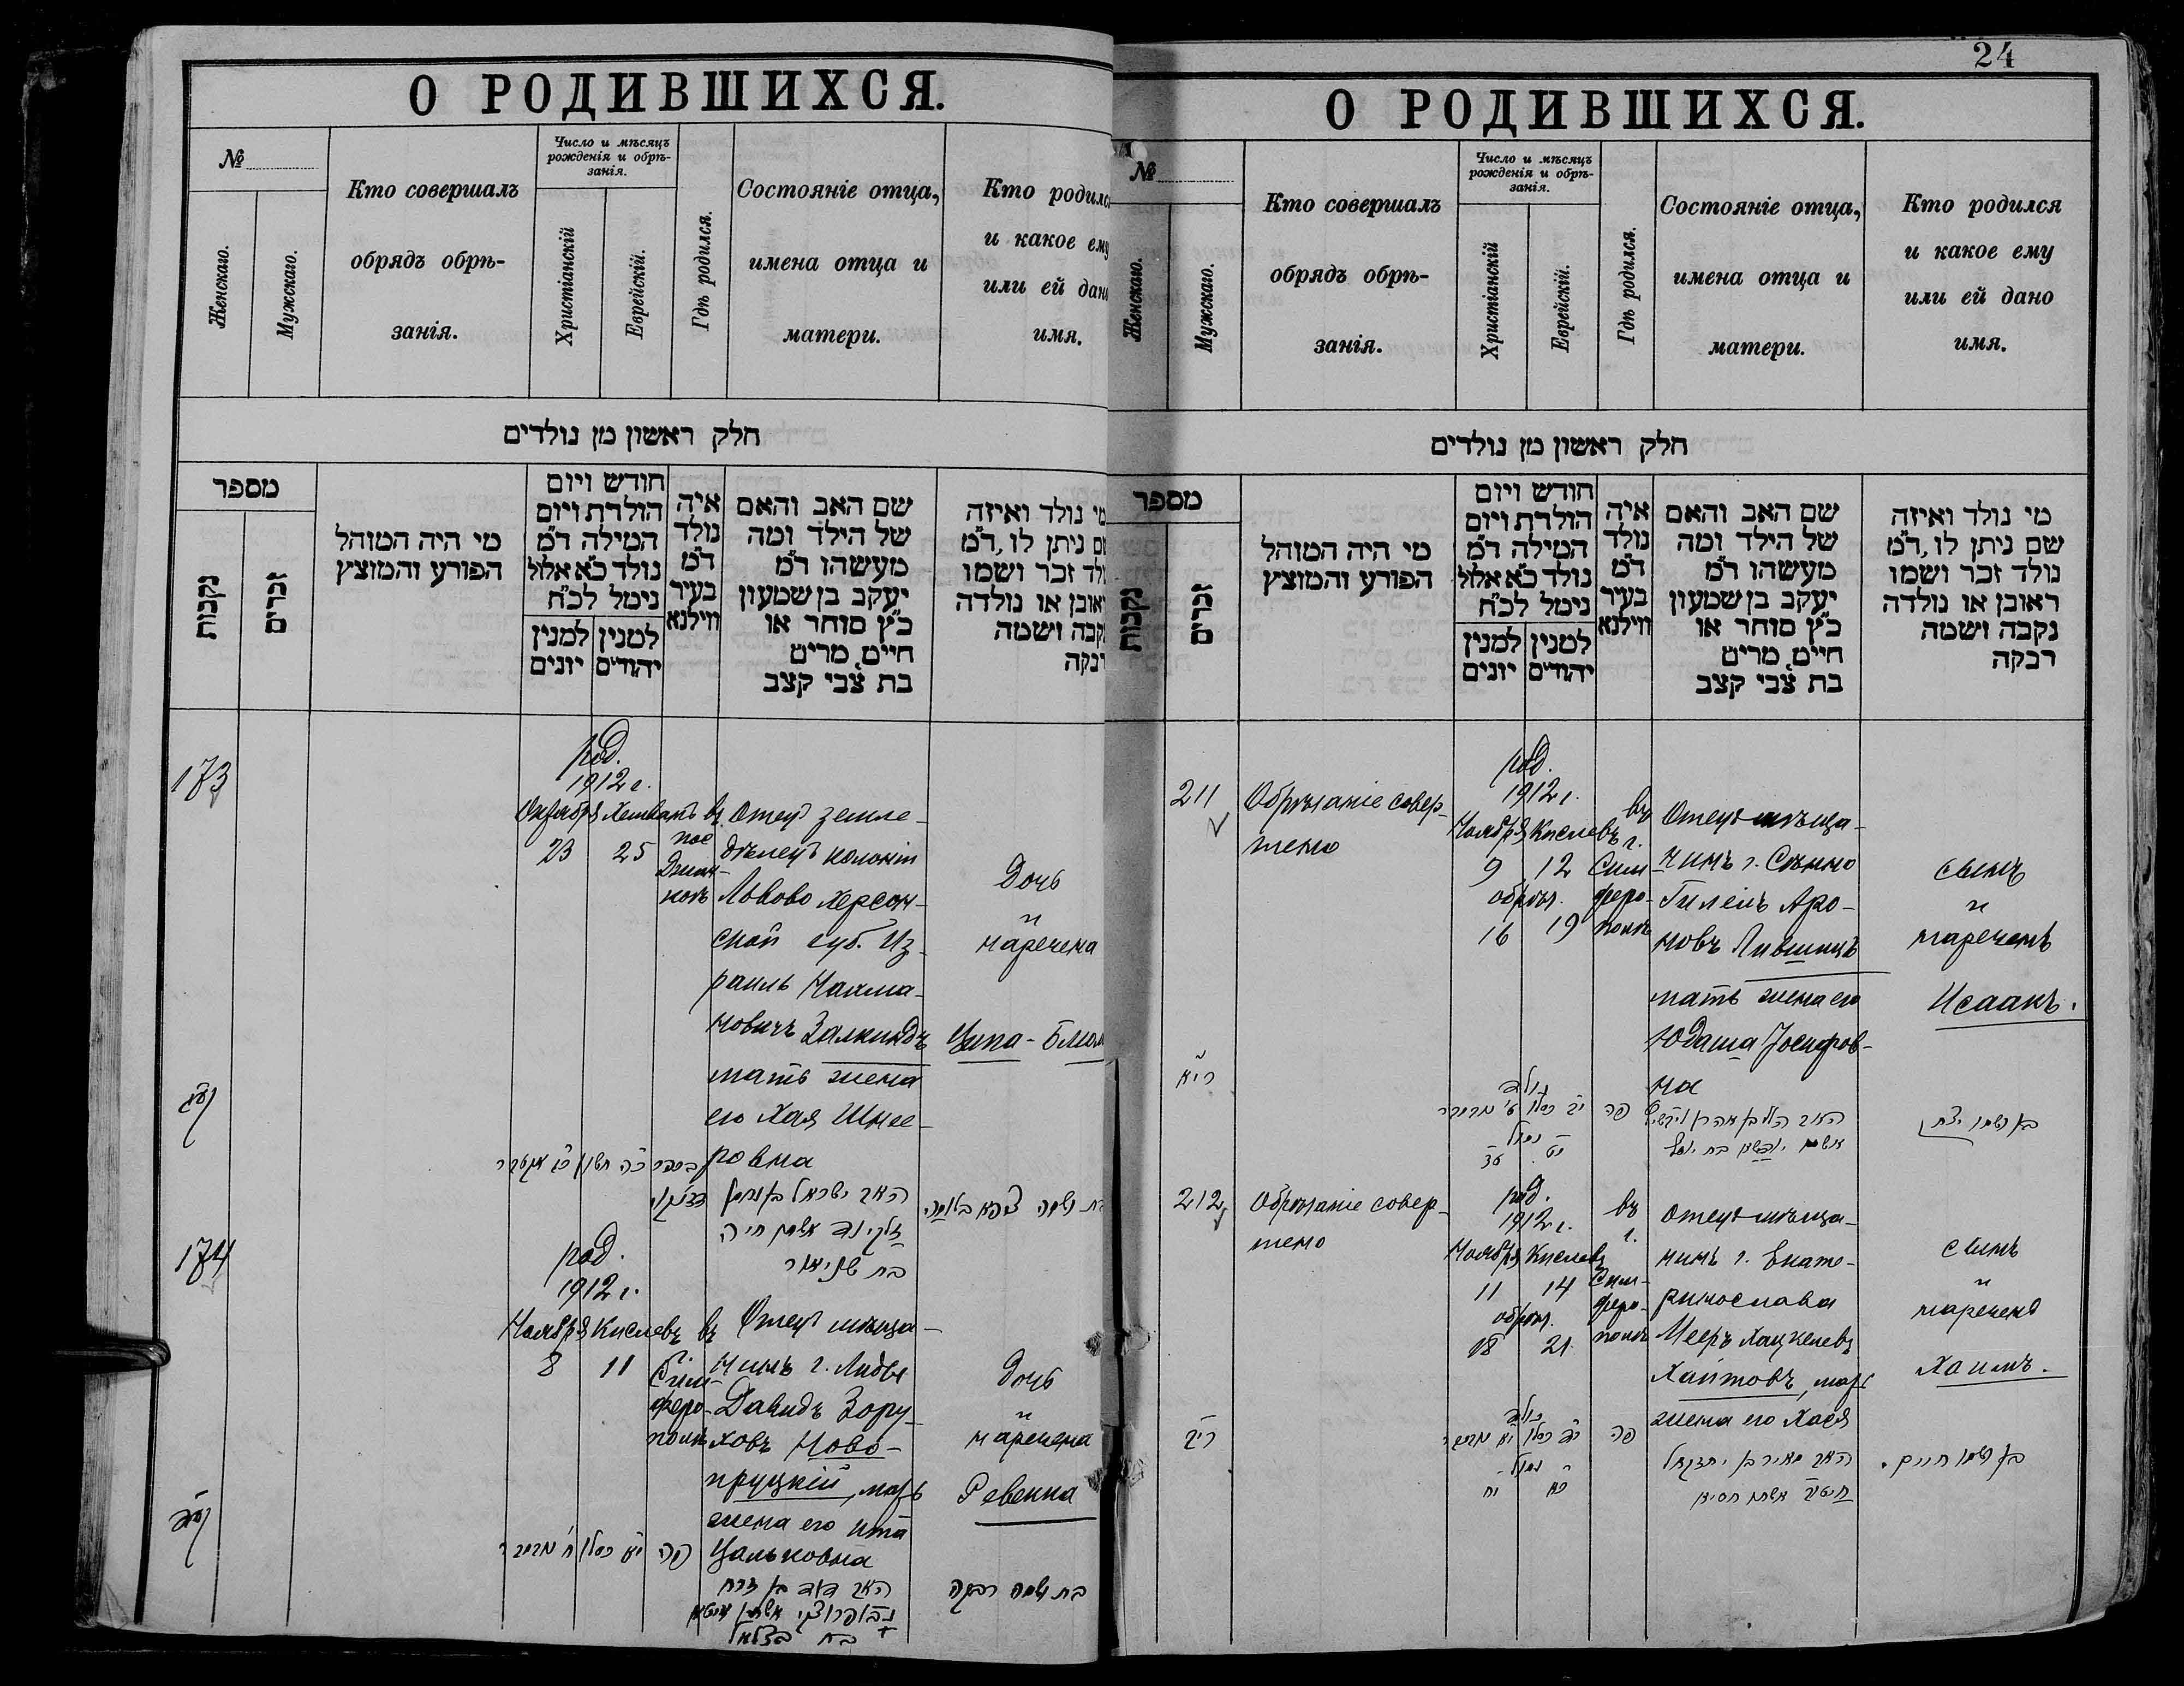 О РОДИВШИХСЯ.
№
Женскаго.
Мужскаго.
Кто совершалъ
обрядъ обрѣ-
занія.
Число и мѣсяцъ
рожденія и обрѣ-
занія.
Христіанскій
Еврейскій.
Гдѣ родился.
Состояніе отца,
имена отца и
матери.
Кто родился
и какое ему
или ей дано
имя.
חלק ראשון מן נולדים
מספר
נקבות
זכרים
מי היה המוהל
הפורע והמוצץ
חודש ויום
הולדת ויום
המילה ד״מ
נולד כ״א אלול
נימל לכ״ח
למנין
יונים
למנין
יהודים
איה
נולד
ד״מ
בעיר
ווילנא
שם האב והאם
של הילד ומה
מעשהו ד״מ
יעקב בן שמעון
כ״ץ סוחר או
חייט, מרים
בת צבי קצב
מי נולד ואיזה
שם ניתן לו, ד״מ
נולד זכר ושמו
ראובן או נולדה
נקבה ושמה
רבקה
173
род.
1912 г.
Октября Хешванъ
23 25
въ
пос
Джан-
коѣ
Отецъ земле-
дѣлецъ колоніи
Львово Херсон-
ской губ. Из-
раиль Нахма-
новичъ Залкиндъ
мать жена
его Хая Шнее-
ровна
Дочь
и
наречена
Ципа-Блюм
האב ישראל בן נחמן
זלקינד אשתו חיה
בת שניאור
174
род.
1912 г.
Ноября Кислевъ
8 11
въ
г.
Сим-
феро-
полѣ
Отецъ мѣща-
нинъ г. Лиды
Давидъ Зору-
ховъ Ново-
пруцкій, мать
жена его Ита
Цальковна
Дочь
и
наречена
Ревекка
פה
האב דוד בן זרח
בת בצלאל
בת ושמה רבקה
24
О РОДИВШИХСЯ.
№
Женскаго.
Мужскаго.
Кто совершалъ
обрядъ обрѣ-
занія.
Число и мѣсяцъ
рожденія и обрѣ-
занія.
Христіанскій
Еврейскій.
Гдѣ родился.
Состояніе отца,
имена отца и
матери.
Кто родился
и какое ему
или ей дано
имя.
חלק ראשון מן נולדים
מספר
נקבות
זכרים
מי היה המוהל
הפורע והמוצץ
חודש ויום
הולדת ויום
המילה ד״מ
נולד כ״א אלול
נימל לכ״ח
למנין
יונים
למנין
יהודים
איה
נולד
ד״מ
בעיר
ווילנא
שם האב והאם
של הילד ומה
מעשהו ד״מ
יעקב בן שמעון
כ״ץ סוחר או
חייט, מרים
בת צבי קצב
מי נולד ואיזה
שם ניתן לו, ד״מ
נולד זכר ושמו
ראובן או נולדה
נקבה ושמה
רבקה
211
Обрѣзаніе совер-
шено
род.
1912 г.
Ноября Кислевъ
9 12
обрѣз.
16 19
въ
г.
Сим
феро-
полѣ
Отецъ мѣща-
нинъ г. Сѣнно
Гилель Аро-
новъ Лившицъ
мать жена его
Юдаша Іосифов-
на
сынъ
и
нареченъ
Исаакъ.
ריא
נולד
פה
בן ושמו יצחק
212
Обрѣзаніе совер-
шено
род.
1912 г.
Ноября Кислевъ
11 14
обрѣз.
18 21
въ
г.
Сим-
феро-
полѣ
Отецъ мѣща-
нинъ г. Екате-
ринослава
Мееръ Хацкелевъ
Хаитовъ, мать
жена его Хася
сынъ
и
нареченъ
Хаимъ.
ריב
נולד
פה
האב מאיר בן יחזקאל
חיטוב אשתו חסיא
בן ושמו חיים.